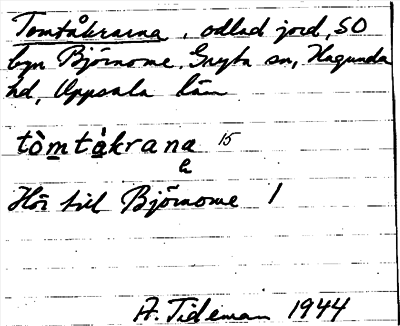 Tomtåkrarna, odlad jord, SO
byn Björnome, Gryta sn, Hagunda
hd, Uppsala län
tòmtåkrana 15
a
Hör till Björnome 1
A. Tideman 1944